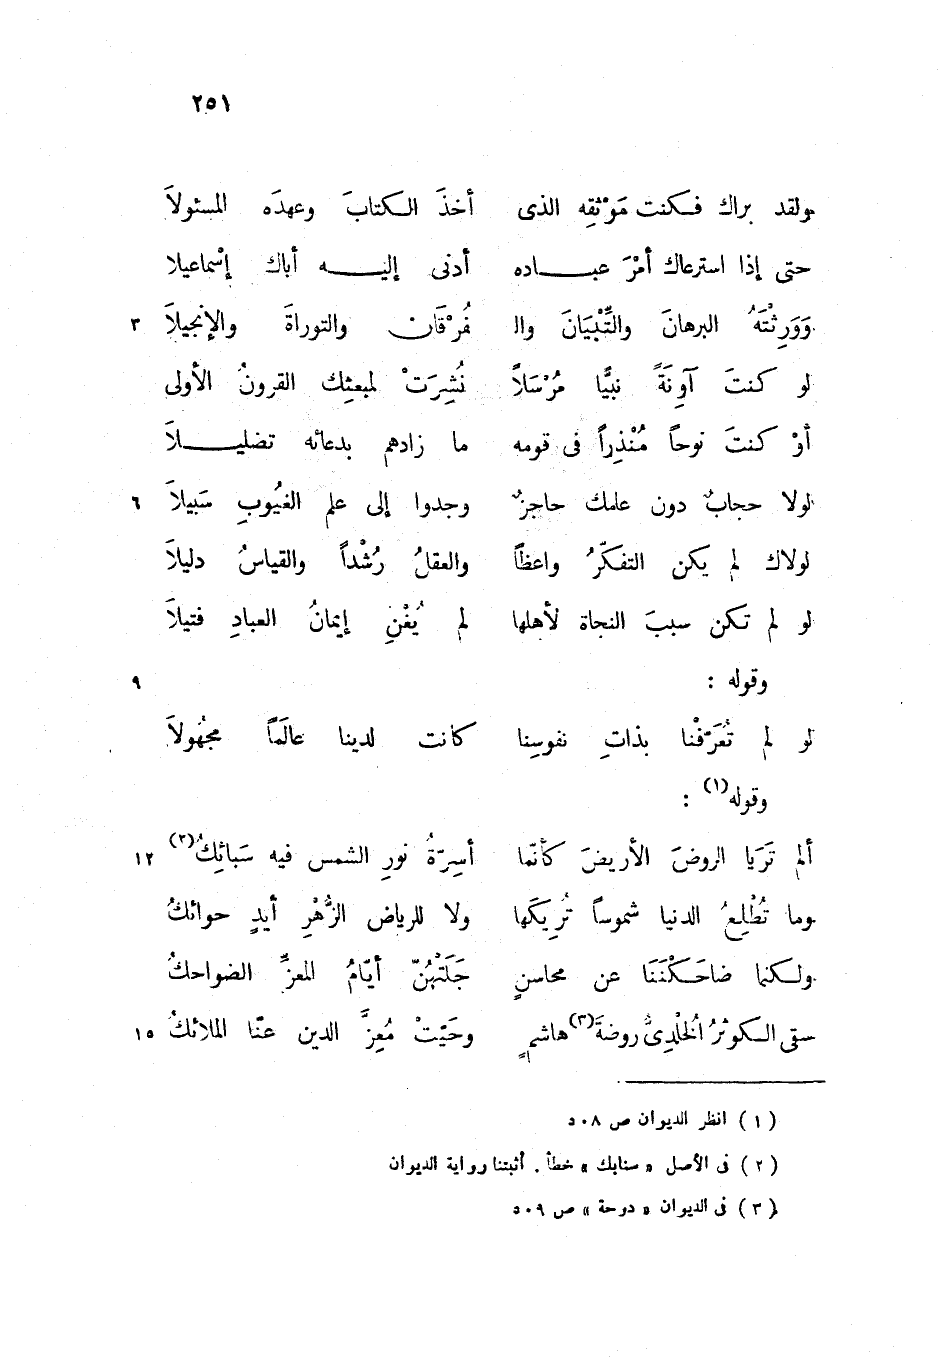 ٢٥١
ولقد براك فكنت مَوْثقِه الذى أخذَ الكتابَ وعهدَه المسئولاَ
حتى إذا استرعاك أمْرَ عباده أدنى إليه أباك إسْماعيلا
وَوَرِثْتَهُ البرهانَ والتِّبْيَانَ والـ فُرْقَان والتوراةَ والإنجيلاَ ٣
لو كنتَ آوِنَةً نبيًّا مُرْسَلاً نُشِرَتْ لمبعثِك القرونُ الأولى
أوْ كنتَ نوحاً مُنْذِراً فى قومه ما زادهم بدعائه تضليلاَ
لولا حجابٌ دون علمك حاجزٌ وجدوا إلى علم الغيُوبِ سَبيلاَ ٦
لولاك لم يكن التفكّرُ واعظاً والعقلُ رُشْداً والقياسُ دليلاَ
لو لم تكن سببَ النجاة لأهلها لم يُغْنِ إيمانُ العبادِ فتيلاَ
وقوله : ٩
لو لم تُعَرّفْنا بذاتِ نفوسِنا كانت لدينا عالَماً مجهُولاَ
وقوله(١) :
ألم تَرَيا الروضَ الأريضَ كأنما أسِرّةُ نورِ الشمس فيه سَبائِكُ(٢) ١٢
وما تُطْلِعُ الدنيا شموساً تُرِيكَها ولا للرياض الزُّهْرِ أيدٍ حوائكُ
ولكنما ضاحَكْنَنَا عن محاسنٍ جَلَتْهُنّ أيّامُ المعزِّ الضواحكُ
سقى الكوثرُ الخُلْدِىُّ روضةَ(٣) هاشمٍ وحَيّتْ مُعِزَّ الدين عنّا الملائكُ ١٥
(١) انظر الديوان ص ٥٠٨
(٢) فى الأصل « سنابك » خطأ . أثبتنا رواية الديوان
(٣) فى الديوان « دوحة » ص ٥٠٩